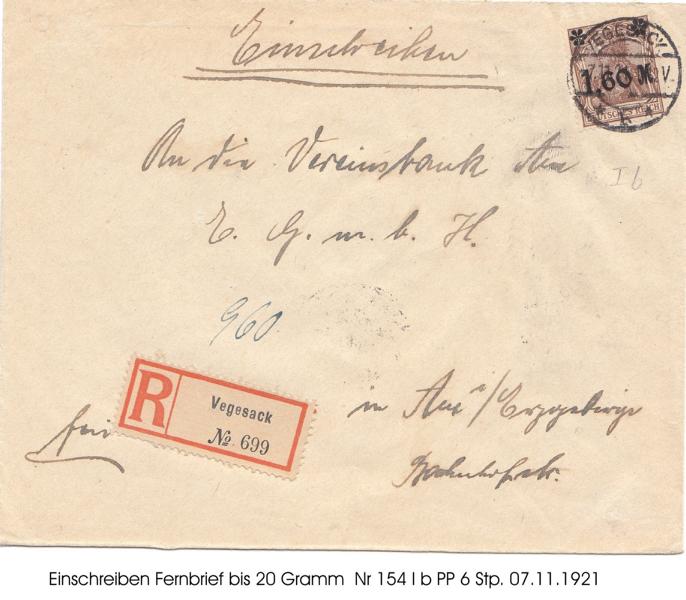 Einschreiben
VEGESACK
1,60 M. V.
DEUTSCHES REICH
An die Vereinsbank Aue
E. G. m. b. H.
I b
960
R Vegesack
№ 699
frei
in Aue i/Erzgebirge
Bahnhofstr.
Einschreiben Fernbrief bis 20 Gramm Nr 154 I b PP 6 Stp. 07.11.1921